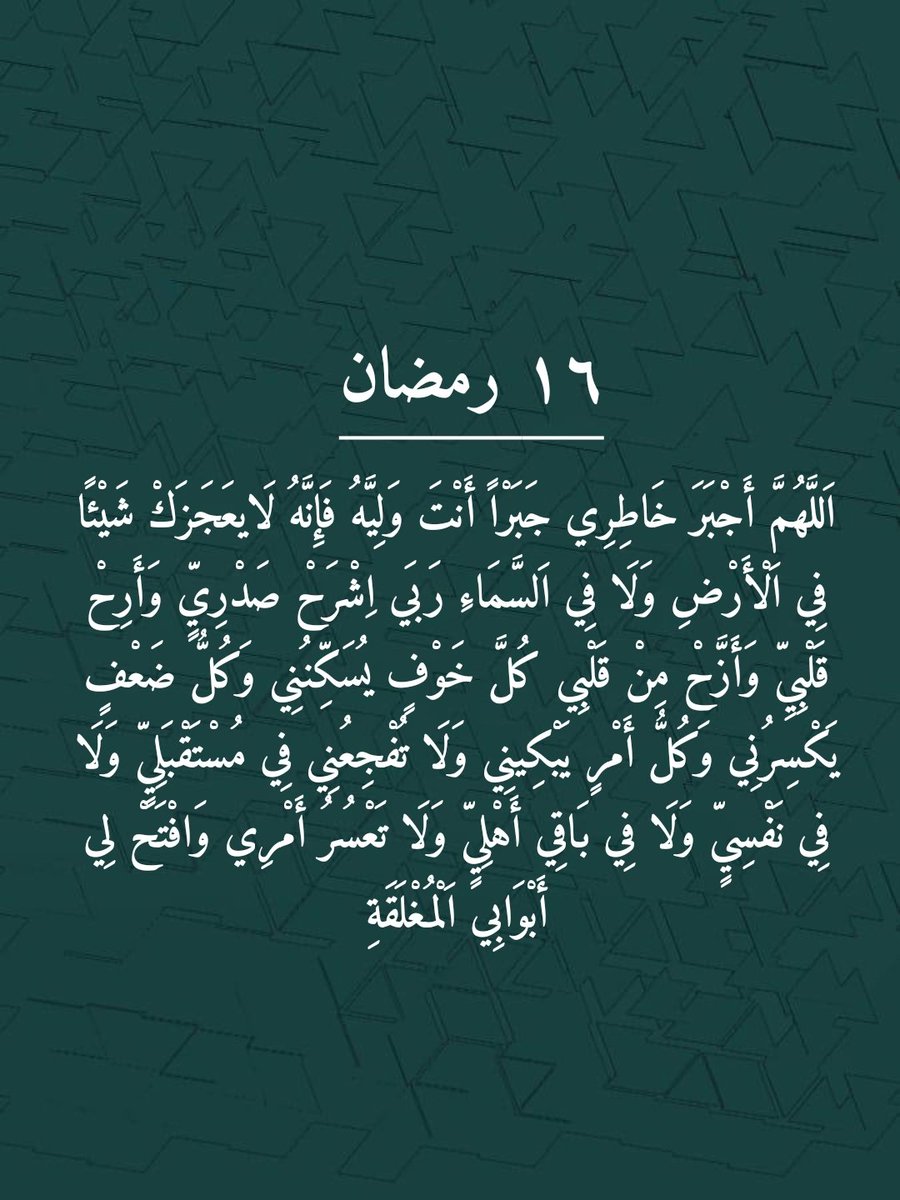 ١٦ رمضان
اَللَّهُمَّ أَجْبَرَ خَاطِرِي جَبَرْاً أَنْتَ وَلِيَّهُ فَإِنَّهُ لَايعَجَزَكْ شَيْئًا
فِي اَلْأَرْضِ وَلَا فِي اَلسَّمَاءِ رَبَي اِشْرَحْ صَدْرِيٍّ وَأَرِحْ
قَلْبِيِّ وَأَزَّحْ مِنْ قَلْبِي كُلَّ خَوْفٍ يُسَكِّنُنِي وَكُلُّ ضَعْفٍ
يَكْسِرُنِي وَكُلُّ أَمْرٍ يَبْكِينِي وَلَا تُفْجِعُنِي فِي مُسْتَقْبَلِيٍّ وَلَا
فِي نَفْسِيٍّ وَلَا فِي بَاقِي أَهْلِيٍّ وَلَا تَعْسُرُ أَمْرِي وَافْتَحْ لِي
أَبْوَابِي اَلْمُغْلَقَةِ